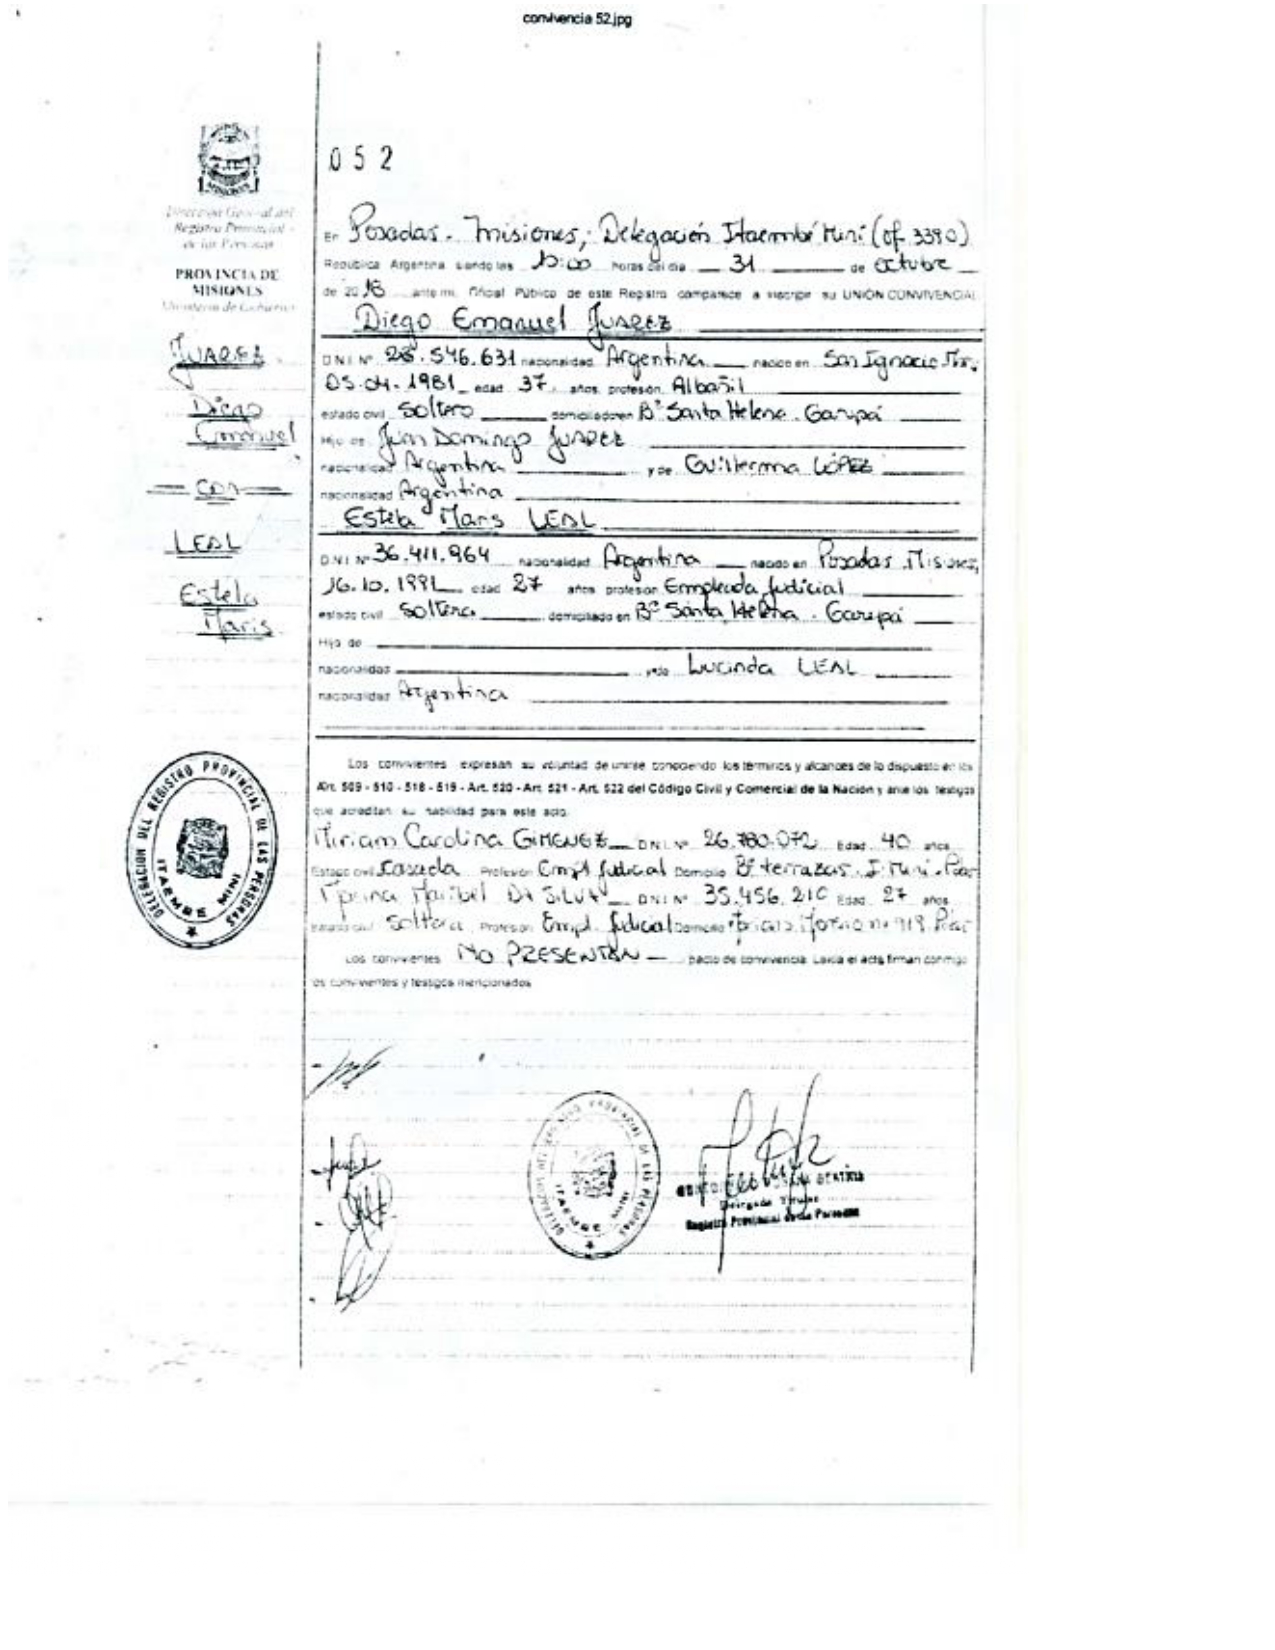 convivencia 52.jpg
052
Dirección General del
Registro Provincial
de las Personas
PROVINCIA DE
MISIONES
Ministerio de Gobierno
JUAREZ
Diego
Emanuel
CON
LEAL
Estela
Maris
En Posadas - Misiones, Delegación Itaembé Miní (of. 3390)
República Argentina siendo las horas del día 31 de octubre
de 2018 ante mi, Oficial Público de este Registro comparece a inscribir su UNIÓN CONVIVENCIAL
Diego Emanuel JUAREZ
D.N.I. Nº 28.546.631 nacionalidad Argentina nacido en San Ignacio
05.04.1981 edad 37 años, profesión Albañil
estado civil Soltero domiciliado en Bº Santa Helena - Garupá
Hijo de Juan Domingo JUAREZ
nacionalidad Argentina y de Guillerma LÓPEZ
nacionalidad Argentina
Estela Maris LEAL
D.N.I. Nº 36.411.964 nacionalidad Argentina nacido en Posadas Misiones
16.10.1991 edad 27 años profesión Empleada Judicial
estado civil Soltera domiciliado en Bº Santa Helena - Garupá
Hijo de
nacionalidad y de Lucinda LEAL
nacionalidad Argentina
Los convivientes expresan su voluntad de unirse conociendo los términos y alcances de lo dispuesto en los
Art. 509 - 510 - 518 - 519 - Art. 520 - Art. 521 - Art. 522 del Código Civil y Comercial de la Nación y ante los testigos
que acreditan su habilidad para este acto.
Miriam Carolina GIMENEZ D.N.I. Nº 26.780.072 Edad 40 años
Estado civil Casada Profesión Empl Judicial Domicilio Bº terrazas I. Miní
Maribel DA SILVA D.N.I. Nº 35.456.210 Edad 27 años
Estado civil Soltera Profesión Empl. Judicial Domicilio nº 919
Los convivientes NO PRESENTAN pacto de convivencia. Leída el acta firman conmigo
los convivientes y testigos mencionados
DELEGACION DEL REGISTRO PROVINCIAL DE LAS PERSONAS
ITAEMBE MINI
DELEGACION DEL REGISTRO PROVINCIAL DE LAS PERSONAS
ITAEMBE MINI
BEATRIZ
Delegada Titular
Registro Provincial de las Personas